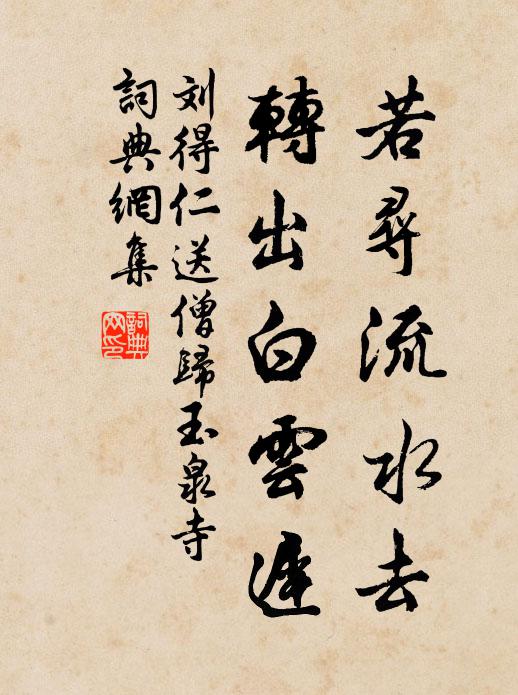 若尋流水去
轉出白雲遲
刘得仁送僧歸玉泉寺
詞典網集
詞典網印